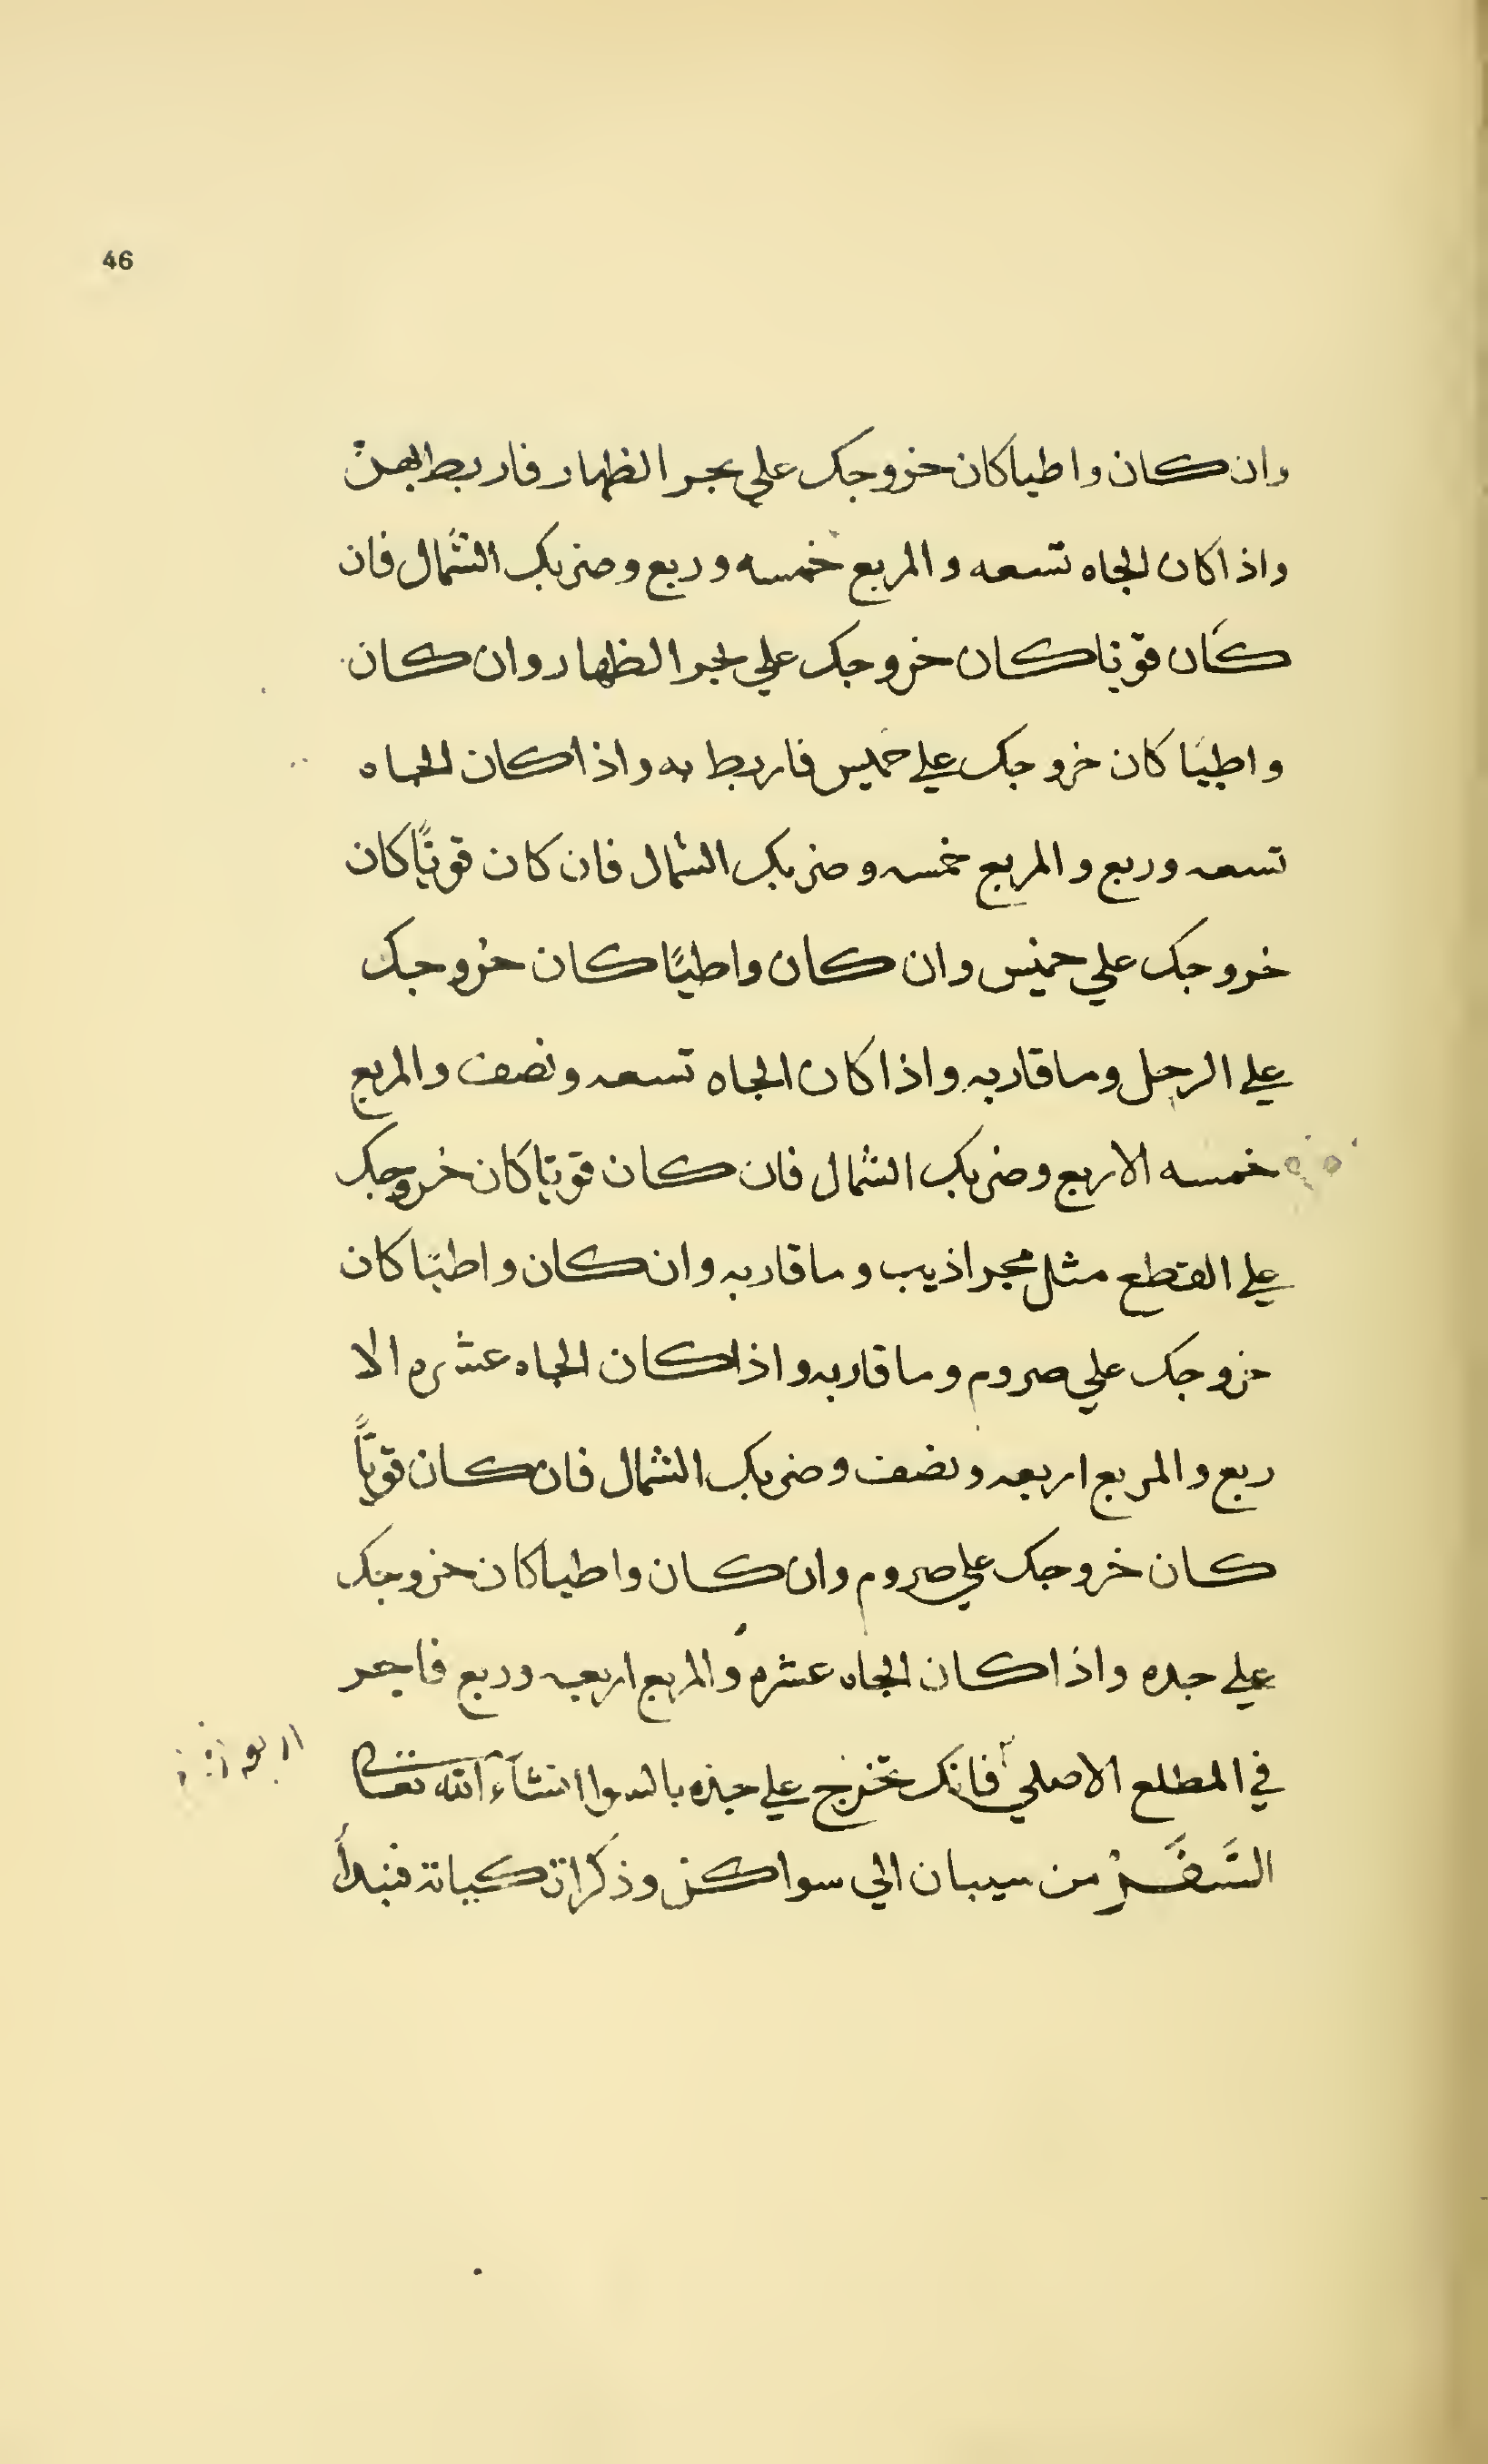 46
وان كان واطيا كان خروجك علي بحر الظهار فاربط بهن
واذا كان الجاه تسعه والمربع خمسه وربع وضربك الشمال فان
كان قويا كان خروجك علي بحر الظهار وان كان
واطيا كان خروجك علي خميس فاربط به واذا كان الجاه
تسعه وربع والمربع خمسه وضربك الشمال فان كان قويًا كان
خروجك علي خميس وان كان واطيًا كان خروجك
علي الرجل وما قاربه واذا كان الجاه تسعه ونصف والمربع
خمسه الا ربع وضربك الشمال فان كان قويا كان خروجك
علي القطع مثل مجر اذيب وما قاربه وان كان واطيًا كان
خروجك علي صروم وما قاربه واذا كان الجاه عشره الا
ربع والمربع اربعه ونصف وضربك الشمال فان كان قويًا
كان خروجك علي صروم وان كان واطيا كان خروجك
علي جده واذا كان الجاه عشره والمربع اربعه وربع فاجر
في المطلع الاصلي فانك تخرج علي جده بالسوا انشآء الله تعالى
السَّفَر من سيبان الي سواكن وذكر اتكيباته فنبدأ